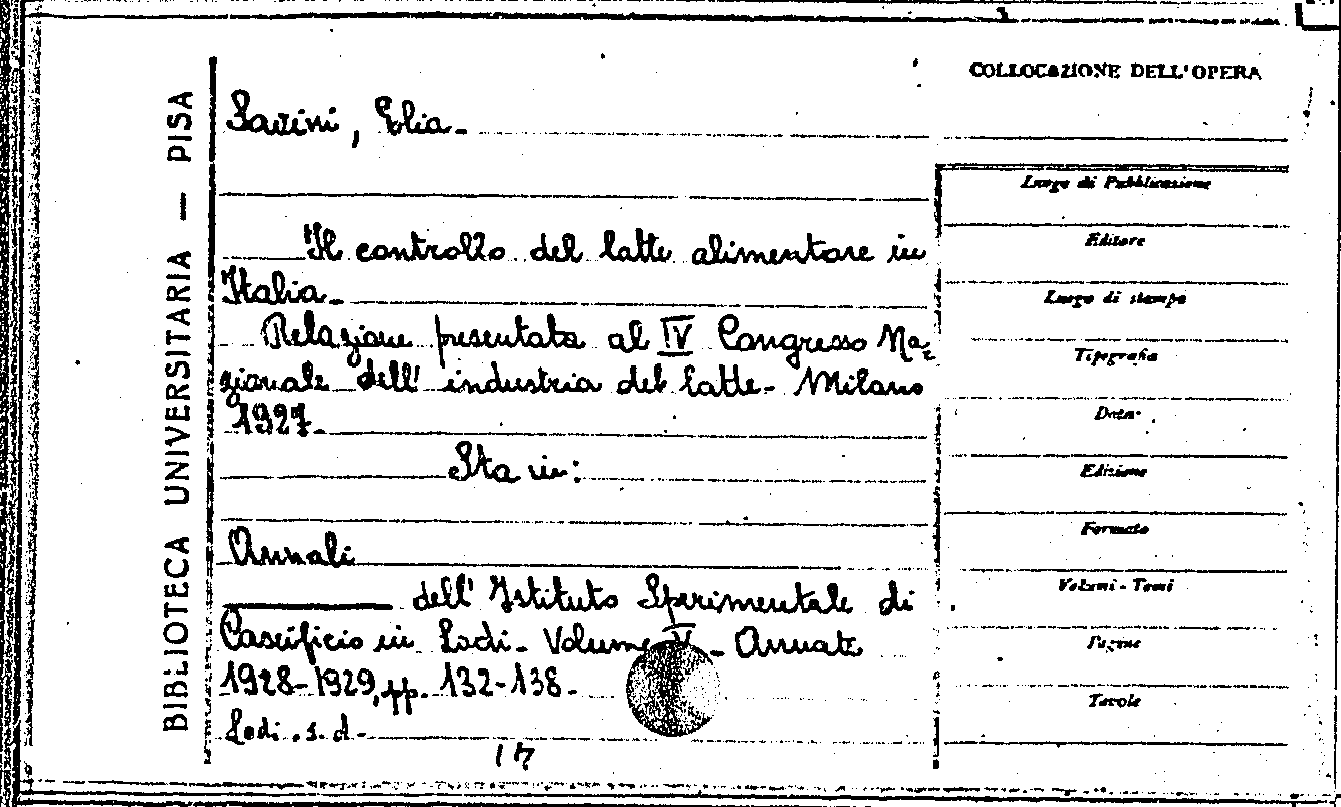 COLLOCAZIONE DELL'OPERA
BIBLIOTECA UNIVERSITARIA — PISA
Savini, Elia.
Il controllo del latte alimentare in
Italia.
Relazione presentata al IV Congresso Na-
zionale dell' industria del latte. Milano
1927.
Sta in:
Annali
dell' Istituto Sperimentale di
Caseificio in Lodi. Volume V. Annate
1928-1929, pp. 132-138.
Lodi. s. d.
17
Luogo di Pubblicazione
Editore
Luogo di stampa
Tipografia
Data
Edizione
Formato
Volumi - Tomi
Pagine
Tavole